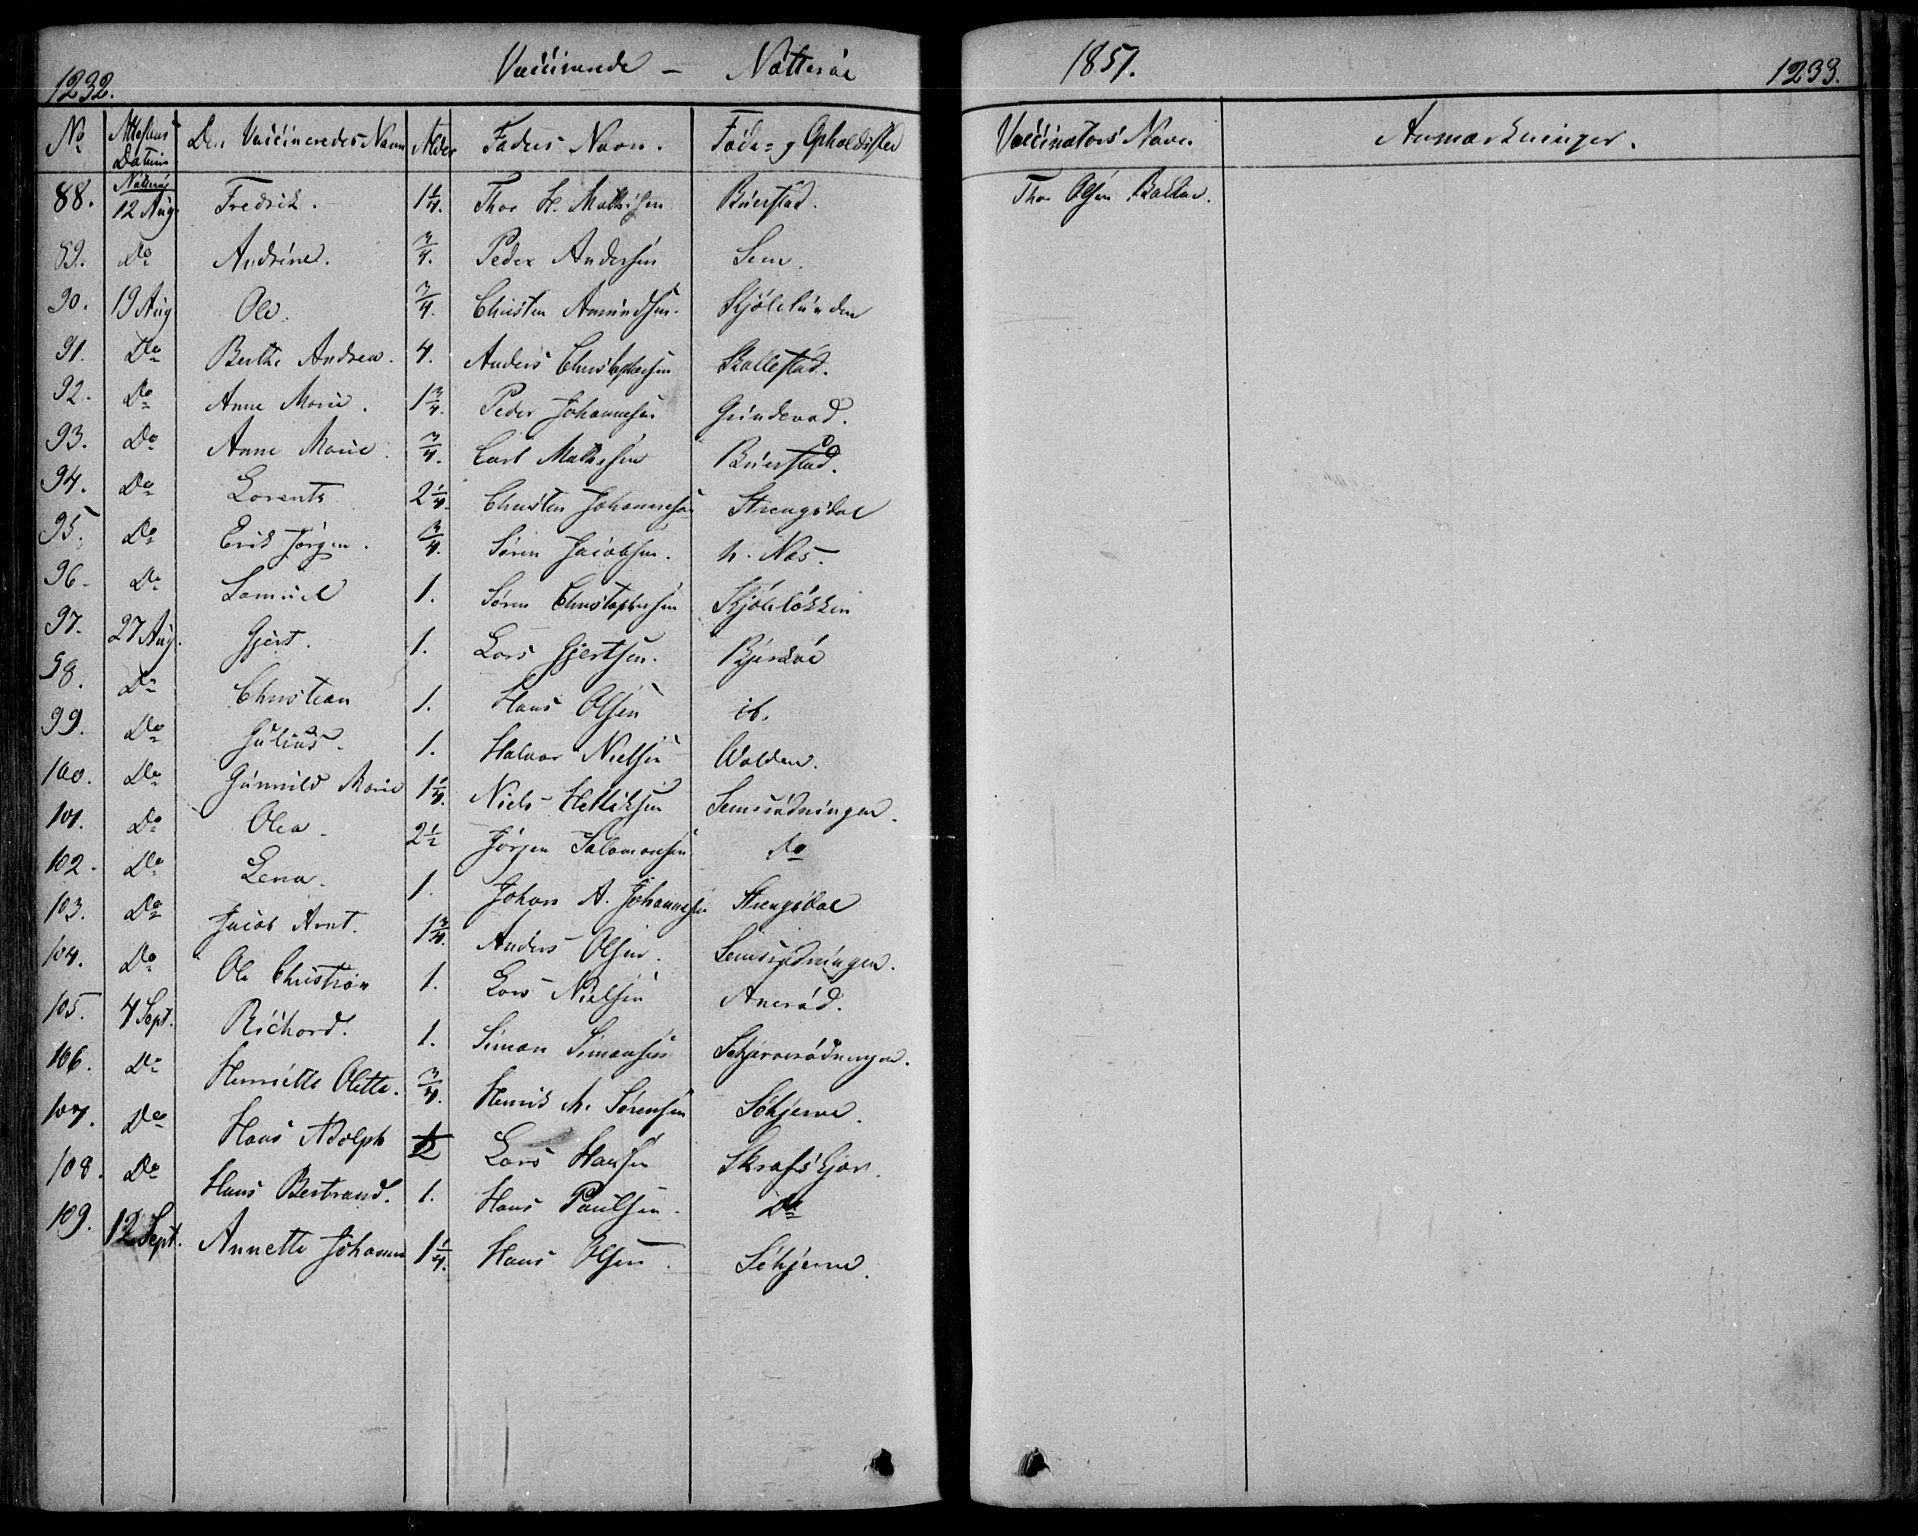 1232. Vaccinerede – Nötteröe 1851. 1233.
No Attestens Datum Den Vaccineredes Navn Alder Faders Navn. Føde- og Opholdssted Vaccinators Navn Anmærkninger.
88. Nötterö 12 Aug. Fredrik. 1 1/4. Thor H. Mathisen Búerstad. Thor Olsen
89. Do Andrine. 3/4. Peder Andersen Sem.
90. 19 Aug Ole. 3/4. Christen Amundsen. Skjölelunden
91. Do Berthe Andrea. 4. Anders Christophersen Skallestad.
92. Do Anne Marie. 1 3/4. Peder Johannesen Grindevad.
93. Do Anne Marie. 3/4. Carl Mathisen Búerstad.
94. Do Lorents 2 1/4. Christen Johannesen Strengsdal
95. Do Erik Jørgen. 3/4. Søren Jacobsen. n. Næs.
96. Do Samuel 1. Søren Christophersen Skjölelökken
97. 27 Aug. Gjert. 1. Lars Gjertsen. Bjerköe
98. Do Christian 1. Hans Olsen ib.
99. Do Julius. 1. Halvor Nielsen Wolden.
100. Do Gunnild Marie 1 1/4. Niels Helliksen Semsrödningen.
101. Do Olea. 2 1/2 Jørgen Salomonsen Do
102. Do Lena. 1. Johan A. Johannesen Strengsdal
103. Do Jacob Arnt. 1 3/4. Anders Olsen. Semsrödningen.
104. Do Ole Christian 1. Lars Nielsen Aneröd.
105. 4 Sept. Richard. 1. Simon Simonsen
106. Do Henriette Olette. 3/4. Henrik M. Sørensen Söhjerne.
107. Do Hans Adolph 1/2 Lars Hansen
108. Do Hans Bertrand. 1. Hans Paulsen. Do
109. 12 Sept. Annette Johanne 1 1/4. Hans Olsen. Söhjerne.